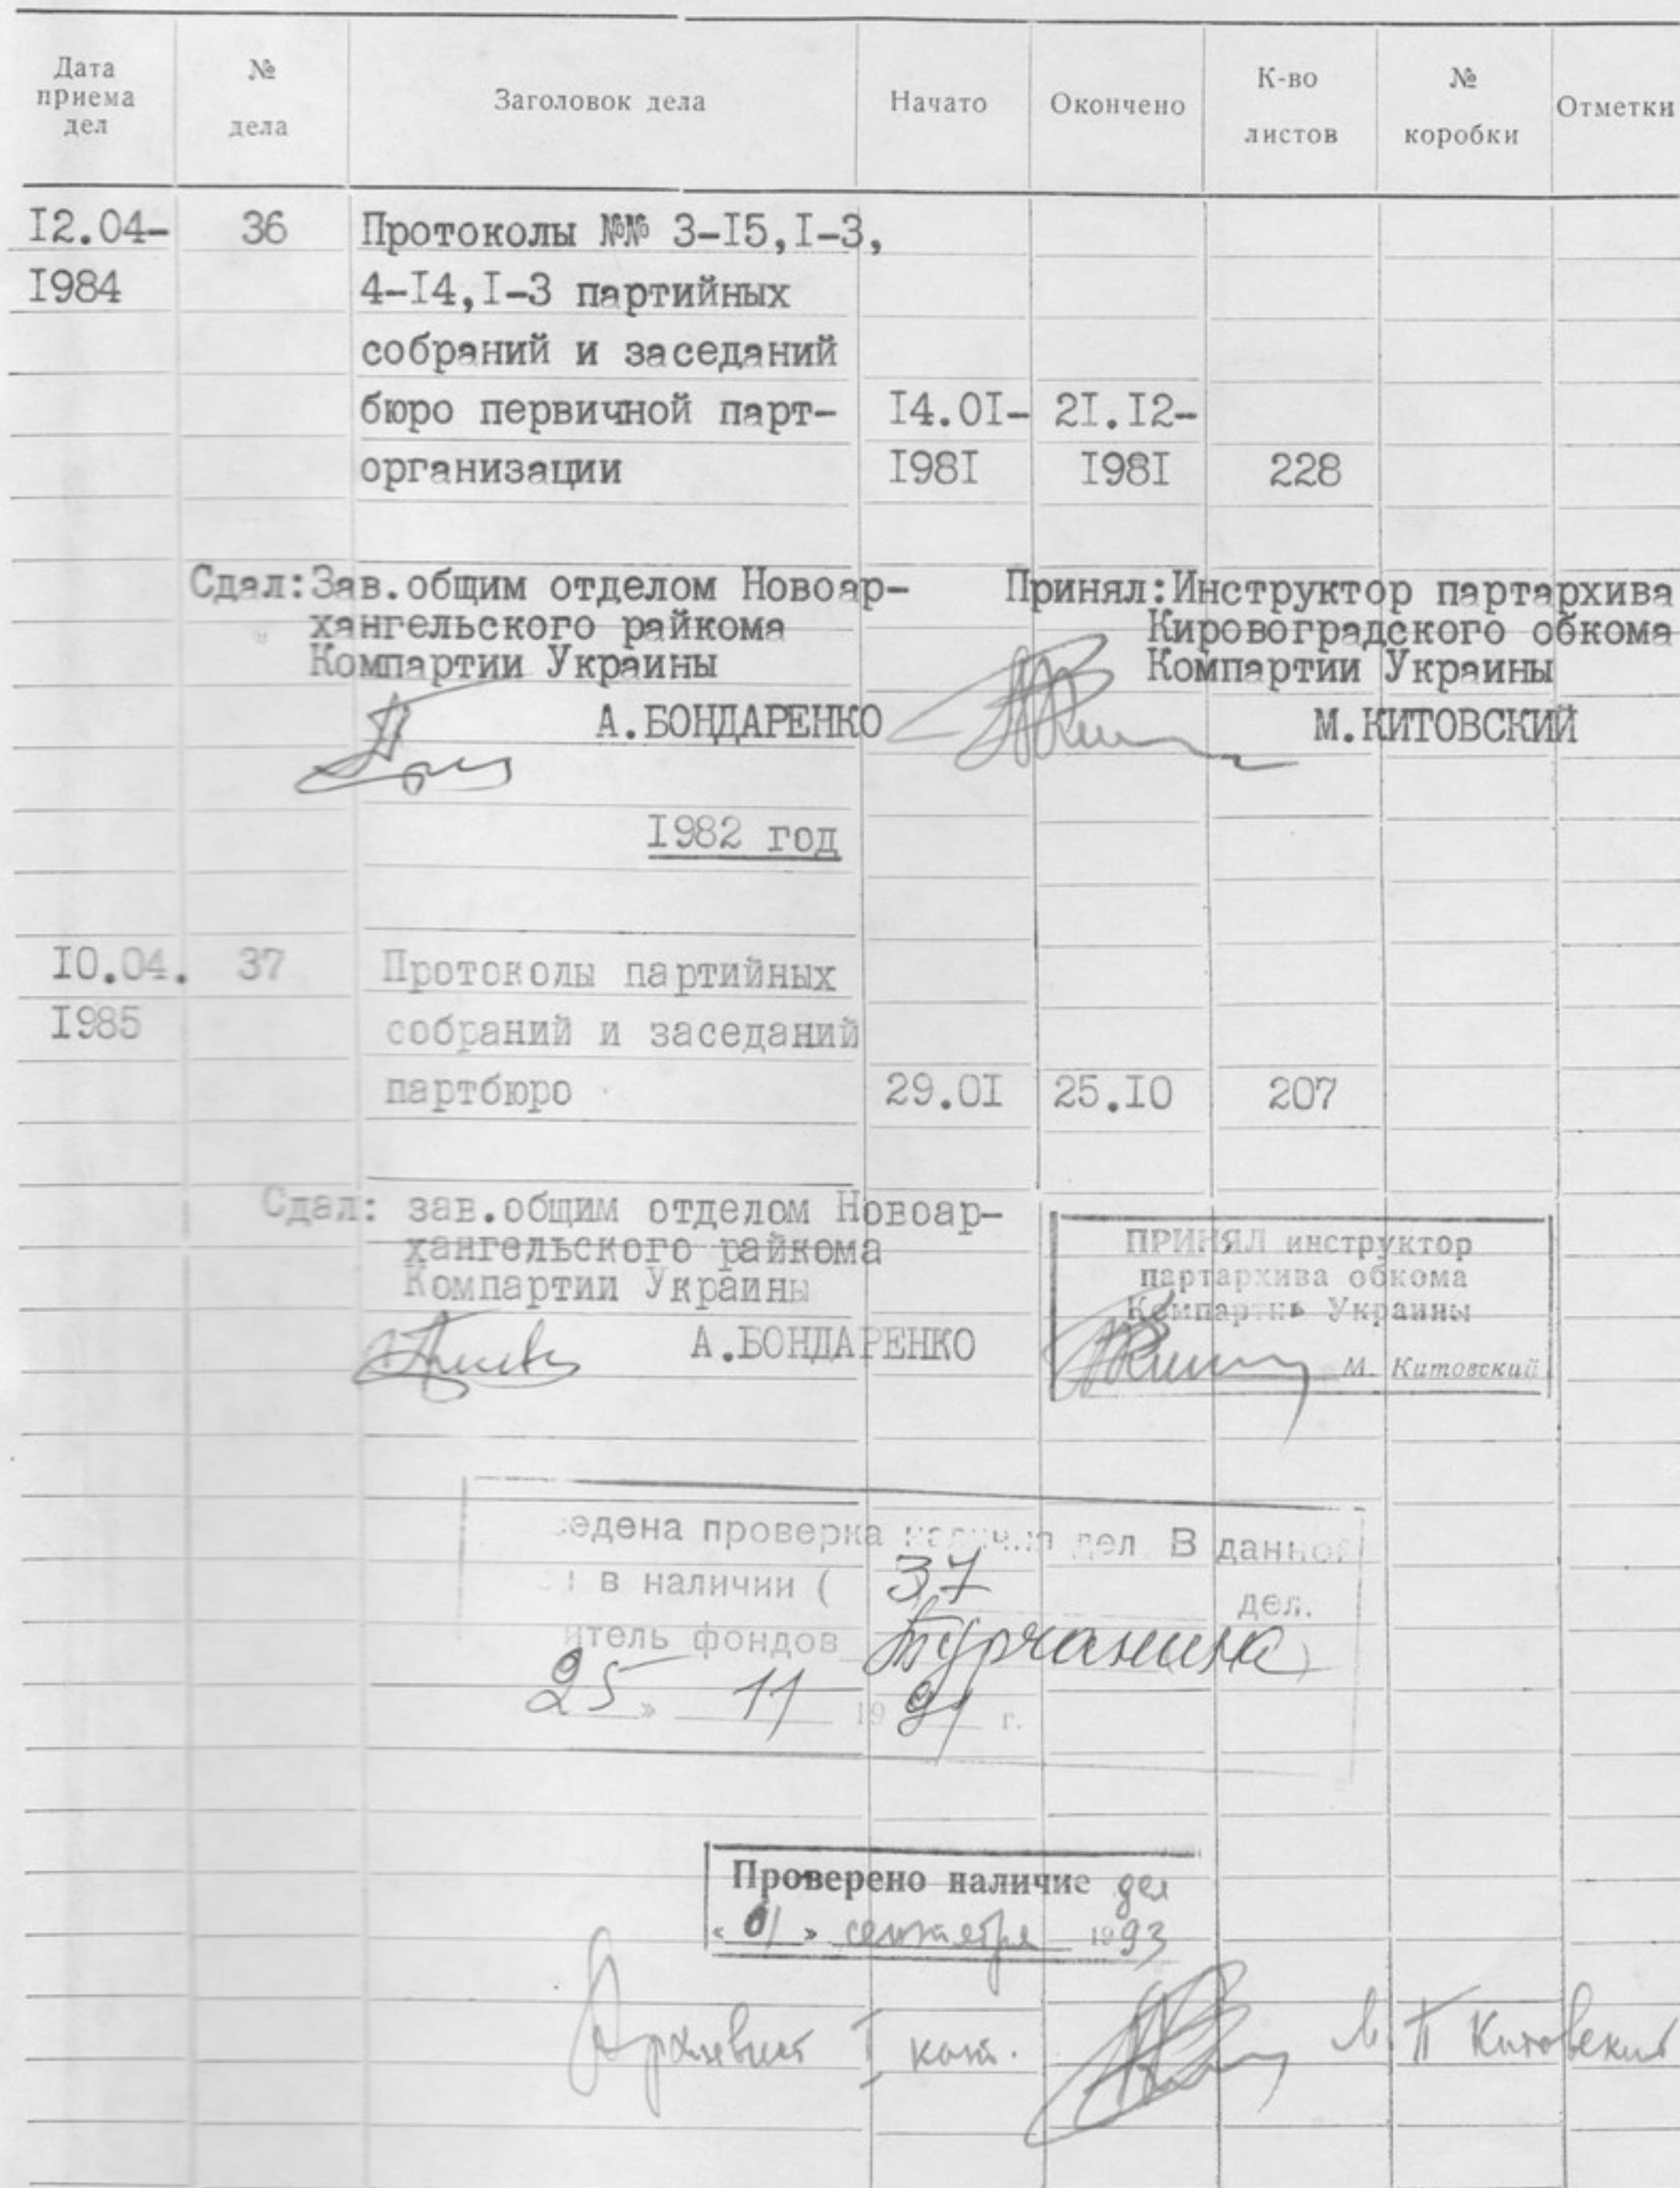 Дата приема дел | № дела | Заголовок дела | Начато | Окончено | К-во листов | № коробки | Отметки
I2.04- 36 Протоколы №№ 3-I5,I-3,
I984 4-I4,I-3 партийных
собраний и заседаний
бюро первичной парт- I4.0I- 2I.I2-
организации I98I I98I 228
Сдал:Зав.общим отделом Новоар-
хангельского райкома
Компартии Украины
А.БОНДАРЕНКО
Принял:Инструктор партархива
Кировоградского обкома
Компартии Украины
М.КИТОВСКИЙ
I982 год
I0.04. 37 Протоколы партийных
I985 собраний и заседаний
партбюро 29.0I 25.I0 207
Сдал: зав.общим отделом Новоар-
хангельского райкома
Компартии Украины
А.БОНДАРЕНКО
ПРИНЯЛ инструктор
партархива обкома
Компартии Украины
М. Китовский
едена проверка наличия дел В данной
в наличии ( 37 дел.
итель фондов )
25 » 11 1991 г.
Проверено наличие дел
« 01 » сентября 1993
Архивист I кат. М П Китовский